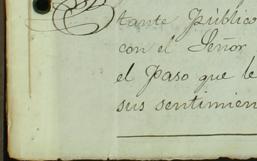 tante Público
con el Señor
el Paso que le
sus sentimien